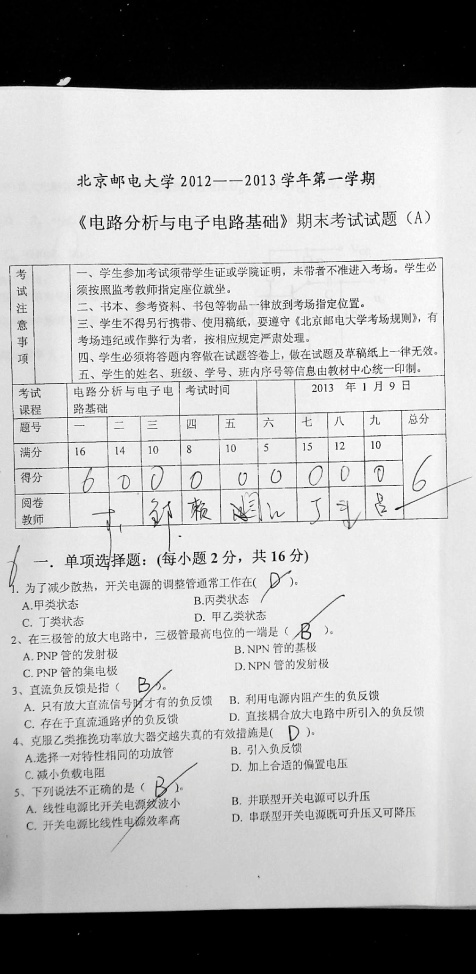 北京邮电大学 2012——2013 学年第一学期
《电路分析与电子电路基础》期末考试试题（A）
考试注意事项
一、学生参加考试须带学生证或学院证明，未带者不准进入考场。学生必
须按照监考教师指定座位就坐。
二、书本、参考资料、书包等物品一律放到考场指定位置。
三、学生不得另行携带、使用稿纸，要遵守《北京邮电大学考场规则》，有
考场违纪或作弊行为者，按相应规定严肃处理。
四、学生必须将答题内容做在试题答卷上，做在试题及草稿纸上一律无效。
五、学生的姓名、班级、学号、班内序号等信息由教材中心统一印制。
考试课程 电路分析与电子电路基础 考试时间 2013 年 1 月 9 日
题号 一 二 三 四 五 六 七 八 九 总分
满分 16 14 10 8 10 5 15 12 10
得分 6 0 0 0 0 0 0 0 0 6
阅卷教师
6 一．单项选择题：(每小题 2 分，共 16 分)
1. 为了减少散热，开关电源的调整管通常工作在( D )。
A.甲类状态 B.丙类状态
C. 丁类状态 D. 甲乙类状态
2、在三极管的放大电路中，三极管最高电位的一端是（ B ）。
A. PNP 管的发射极 B. NPN 管的基极
C. PNP 管的集电极 D. NPN 管的发射极
3、直流负反馈是指（ B ）。
A. 只有放大直流信号时才有的负反馈 B. 利用电源内阻产生的负反馈
C. 存在于直流通路中的负反馈 D. 直接耦合放大电路中所引入的负反馈
4、克服乙类推挽功率放大器交越失真的有效措施是( D )。
A.选择一对特性相同的功放管 B. 引入负反馈
C. 减小负载电阻 D. 加上合适的偏置电压
5、下列说法不正确的是（ B ）。
A. 线性电源比开关电源纹波小 B. 并联型开关电源可以升压
C. 开关电源比线性电源效率高 D. 串联型开关电源既可升压又可降压